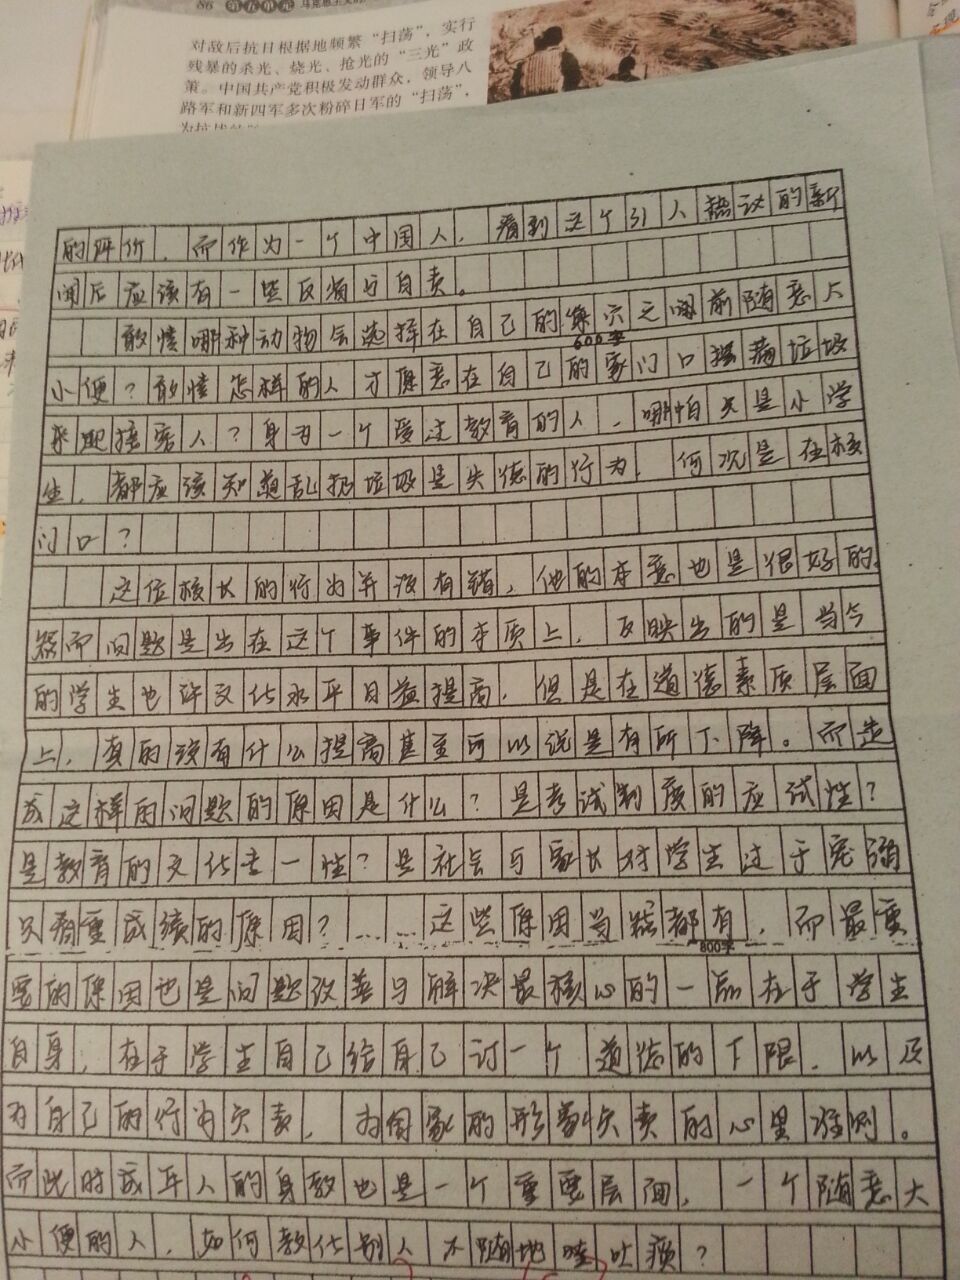 86 第五单元
对敌后抗日根据地频繁“扫荡”，实行
残暴的杀光、烧光、抢光的“三光”政
策。中国共产党积极发动群众，领导八
路军和新四军多次粉碎日军的“扫荡”，
的评价，而作为一个中国人，看到这个引人热议的新
闻后应该有一些反省与自责。
敢情哪种动物会选择在自己的巢穴之前随意大
600字
小便？敢情怎样的人才愿意在自己的家门口堆满垃圾
来迎接客人？身为一个受过教育的人，哪怕只是小学
生，都应该知道乱扔垃圾是失德的行为，何况是在校
门口？
这位校长的行为并没有错，他的本意也是很好的。
然而问题是出在这个事件的本质上，反映出的是当今
的学生也许文化水平日益提高，但是在道德素质层面
上，真的没有什么提高甚至可以说是有所下降。而造
成这样的问题的原因是什么？是考试制度的应试性？
是教育的文化专一性？是社会与家长对学生过于宠溺
只看重成绩的原因？……这些原因当然都有，而最重
800字
要的原因也是问题改善与解决最核心的一点在于学生
自身，在于学生自己给自己订一个道德的下限，以及
为自己的行为负责，为国家的形象负责的心里准则。
而此时成年人的身教也是一个重要层面，一个随意大
小便的人，如何教化别人不随地吐痰？